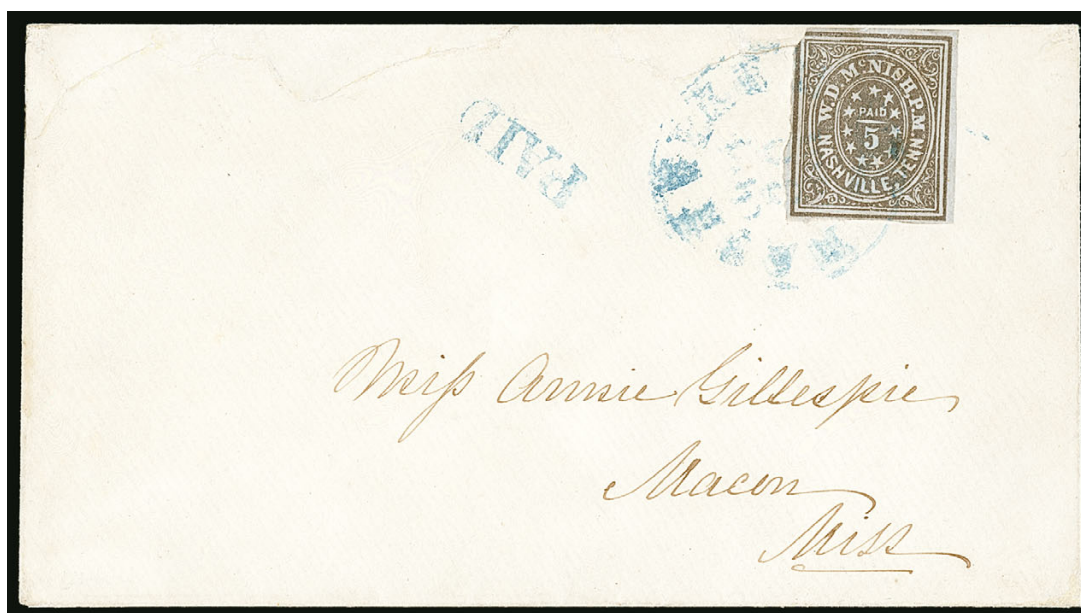 PAID
W.D. McNISH. P.M
PAID
5
NASHVILLE, TENN
Miss Annie Gillespie
Macon
Miss